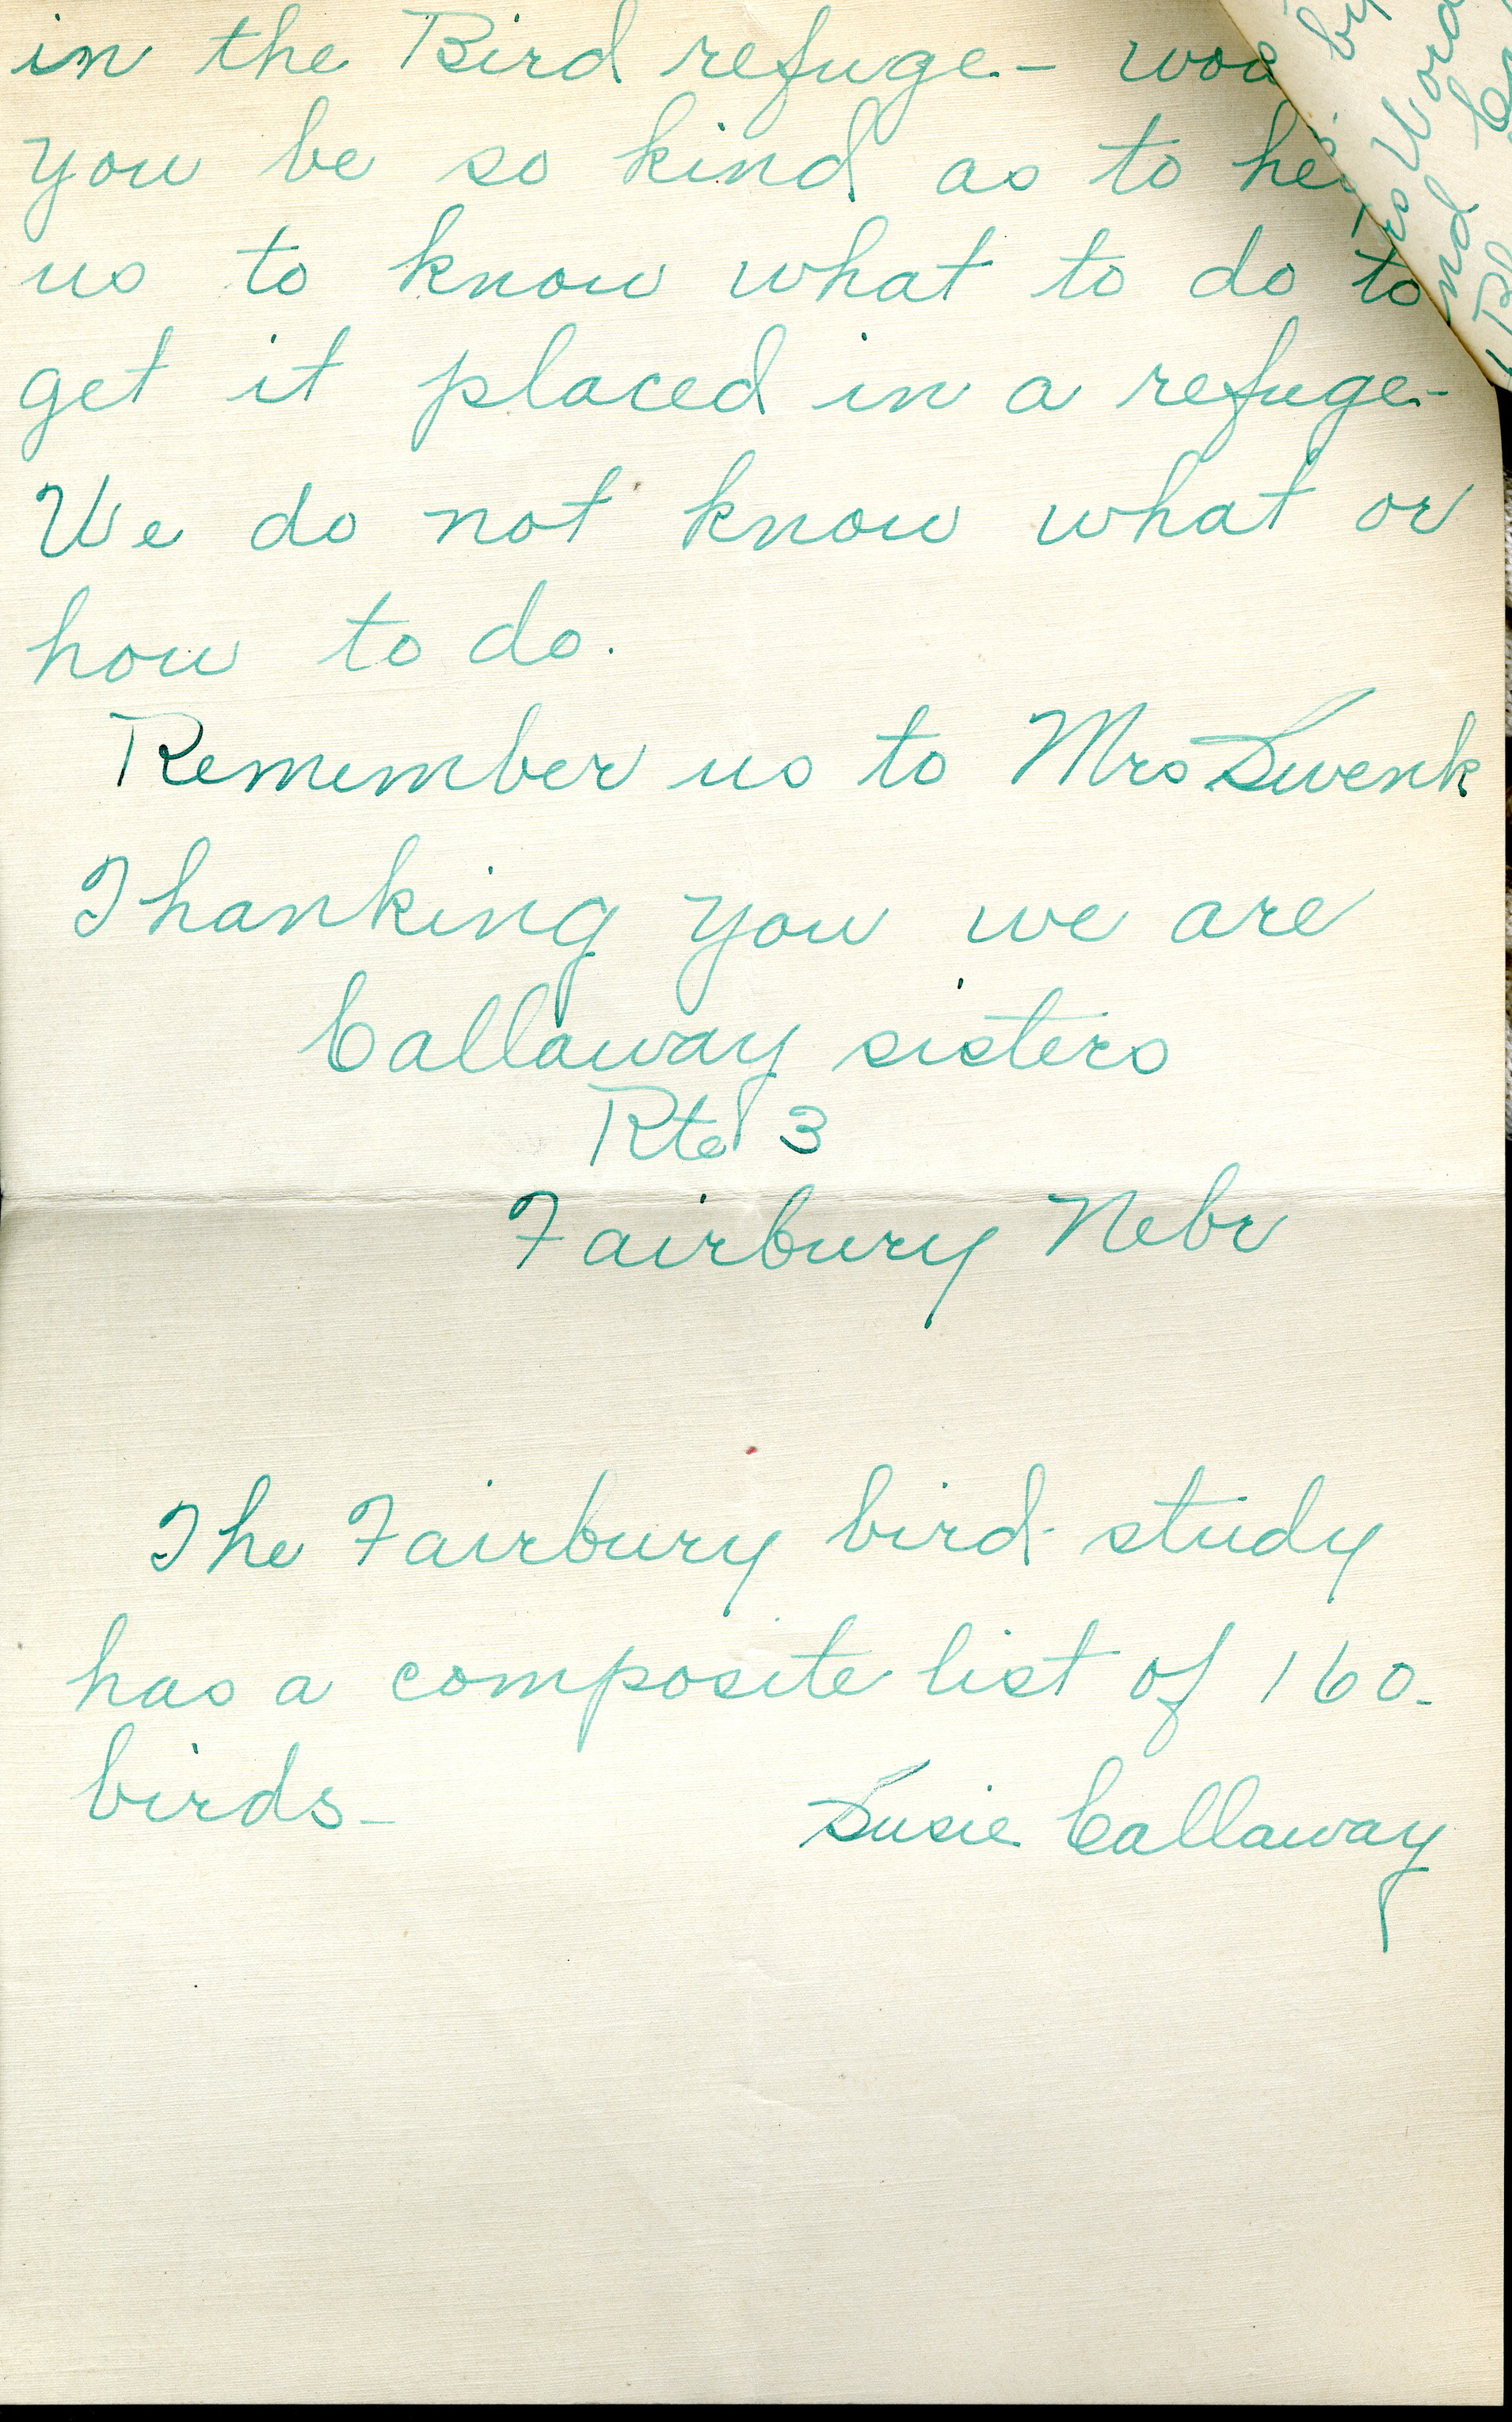 in the Bird refuge - 
you be so kind as to
us to know what to do to
get it placed in a refuge-
We do not know what or
how to do.
Remember us to Mrs Swenk
Thanking you we are
Callaway sisters
Rte 3
Fairbury Nebr
The Fairbury bird study
has a composite list of 160-
birds-
Susie Callaway